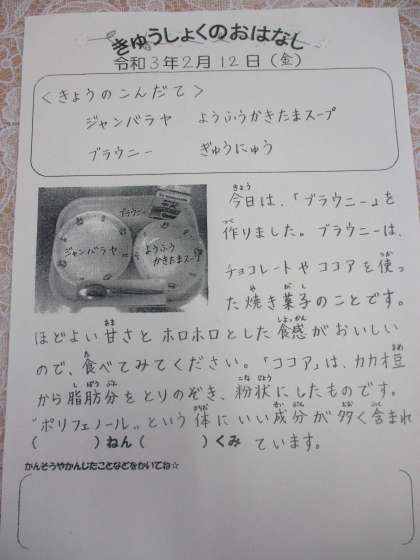 きゅうしょくのおはなし
令和3年2月12日(金)
<きょうのこんだて>
ジャンバラヤ ようふうかきたまスープ
ブラウニー ぎゅうにゅう
ブラウニー
ジャンバラヤ
ようふう
かきたまスープ
今日は、「ブラウニー」を
作りました。ブラウニーは、
チョコレートやココアを使っ
た焼き菓子のことです。
ほどよい甘さとホロホロとした食感がおいしい
ので、食べてみてください。「ココア」は、カカオ豆
から脂肪分をとりのぞき、粉状にしたものです。
"ポリフェノール"という体にいい成分が多く含まれ
( )ねん( )くみ ています。
かんそうやかんじたことなどをかいてね☆